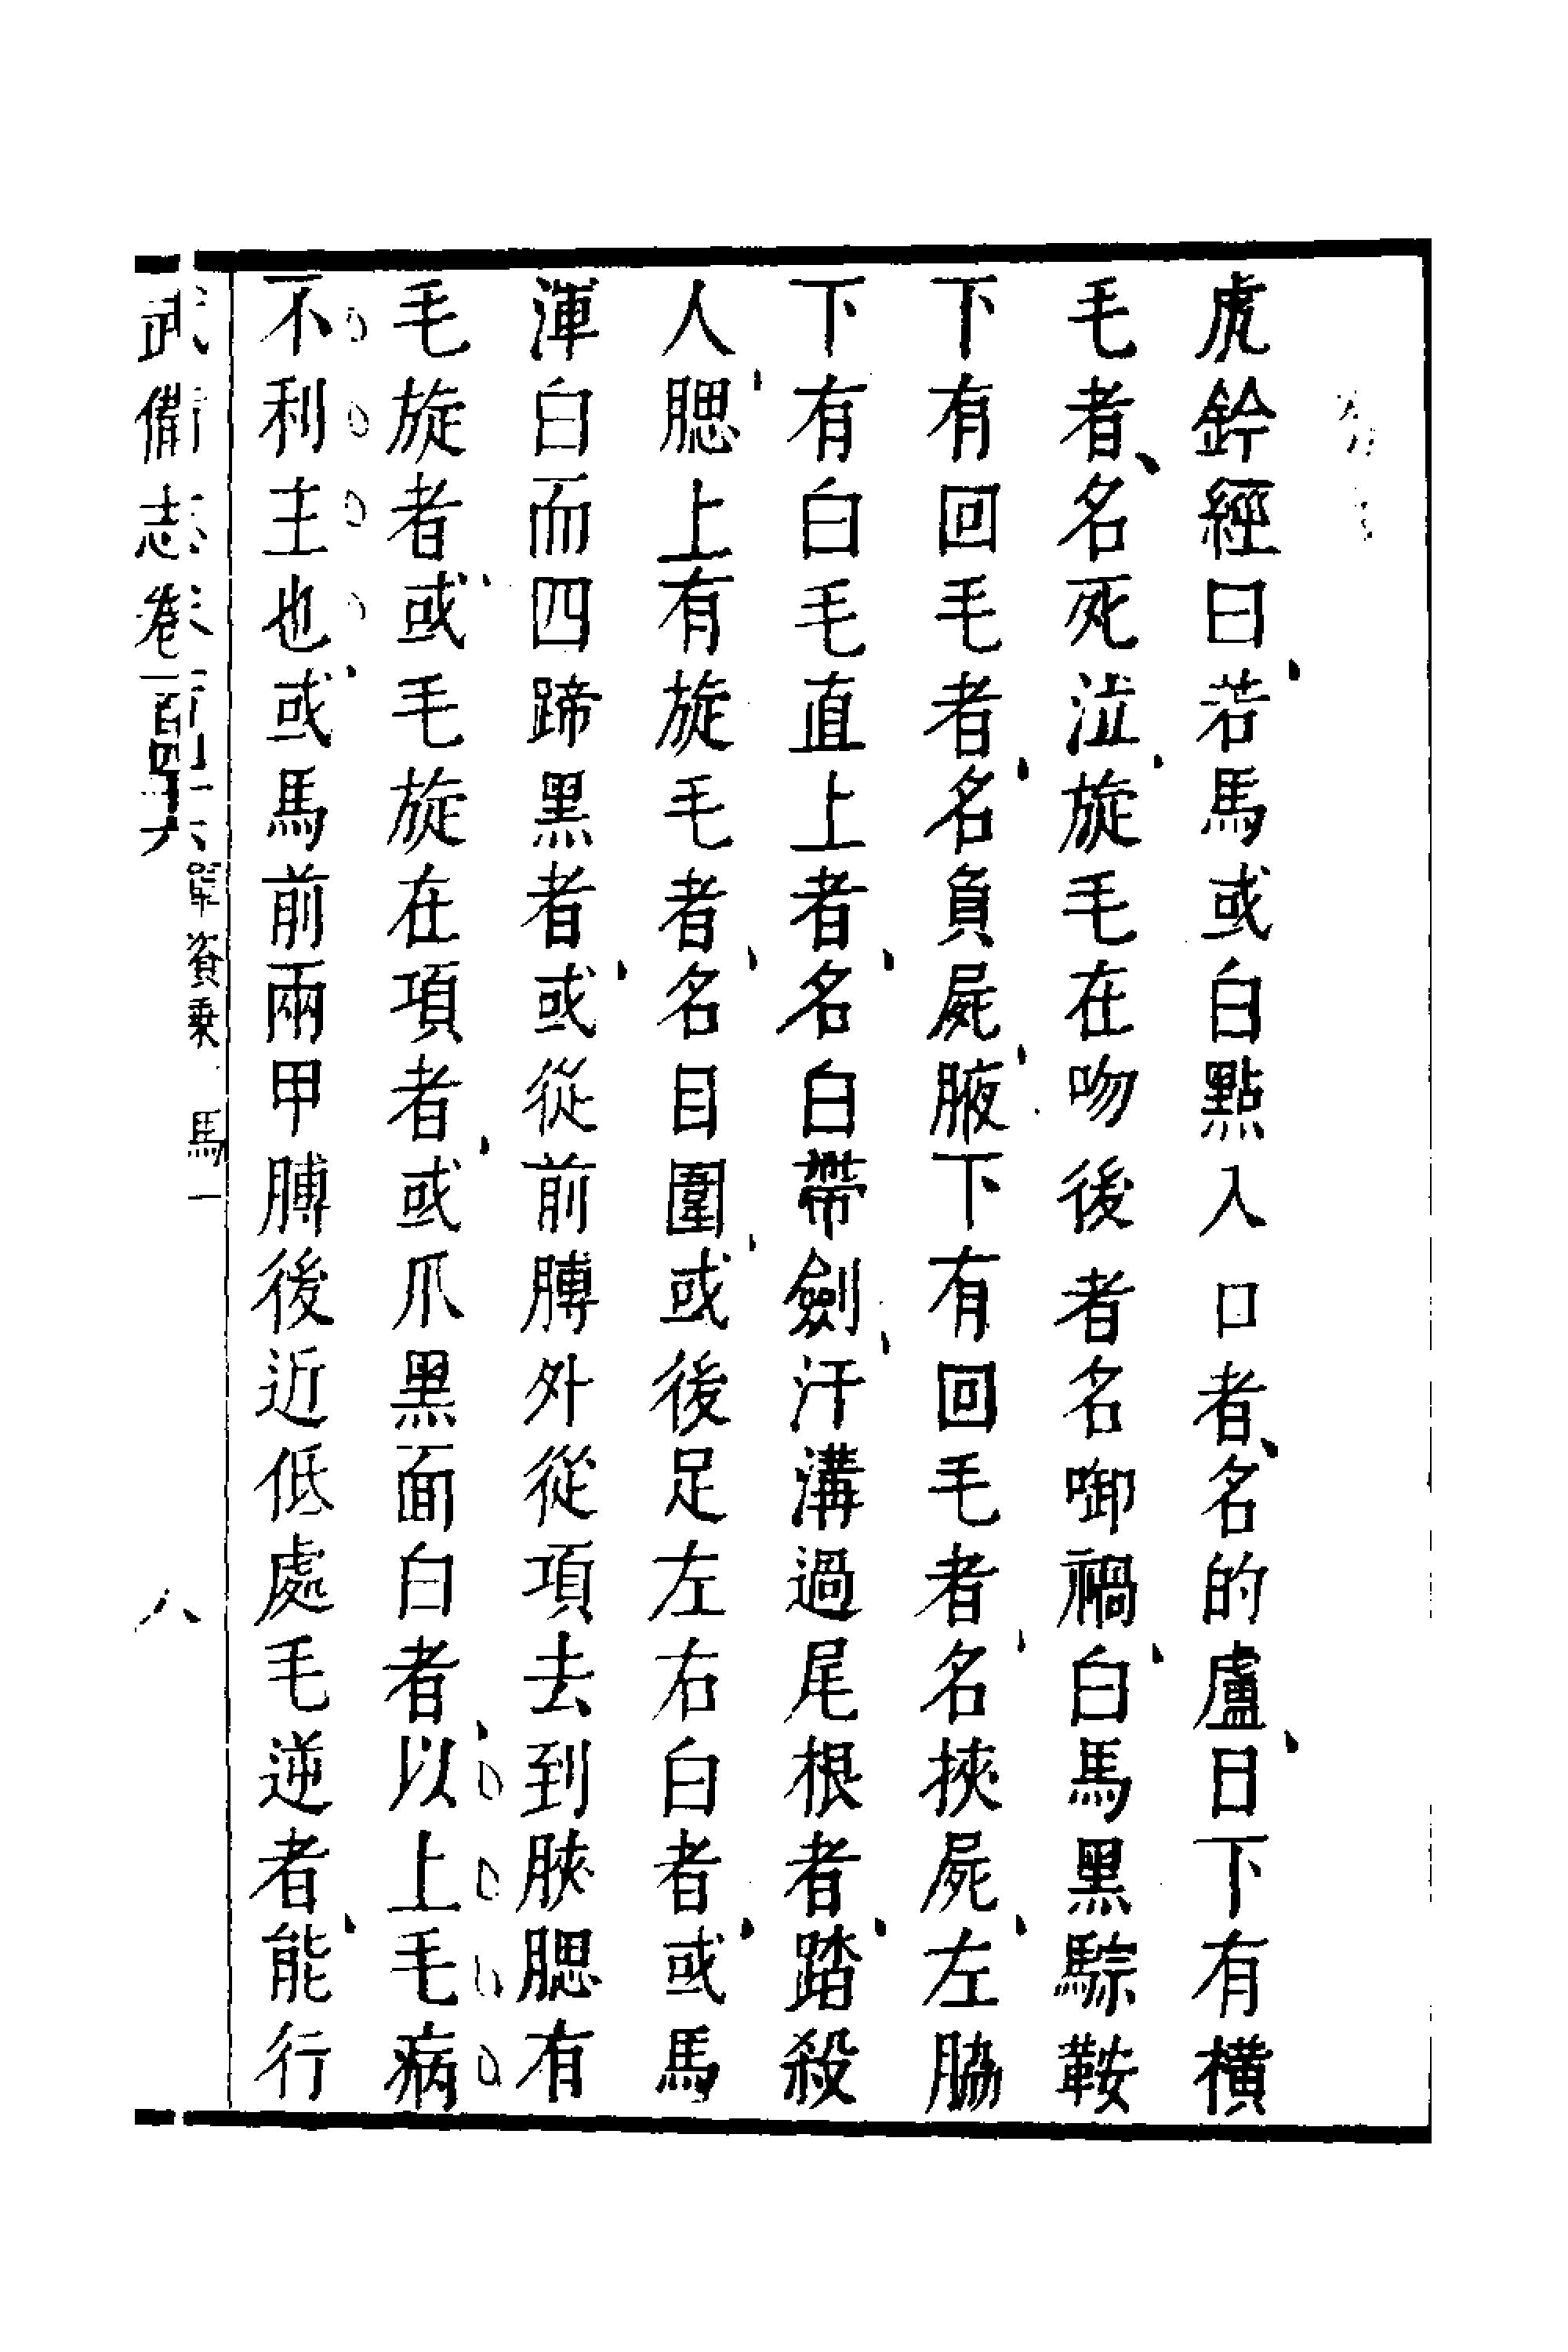 虎鈐經曰若馬或白點入口者名的盧日下有橫
毛者名死泣旋毛在吻後者名啣禍白馬黑騌鞍
下有回毛者名負屍腋下有回毛者名挾屍左脇
下有白毛直上者名白帶劍汗溝過尾根者踏殺
人腮上有旋毛者名目圍或後足左右白者或馬
渾白而四蹄黑者或從前膊外從項去到脥腮有
毛旋者或毛旋在項者或爪黑面白者以上毛病
不利主也或馬前兩甲膊後近低處毛逆者能行
武備志卷一百四十六 軍資乘 馬一 八